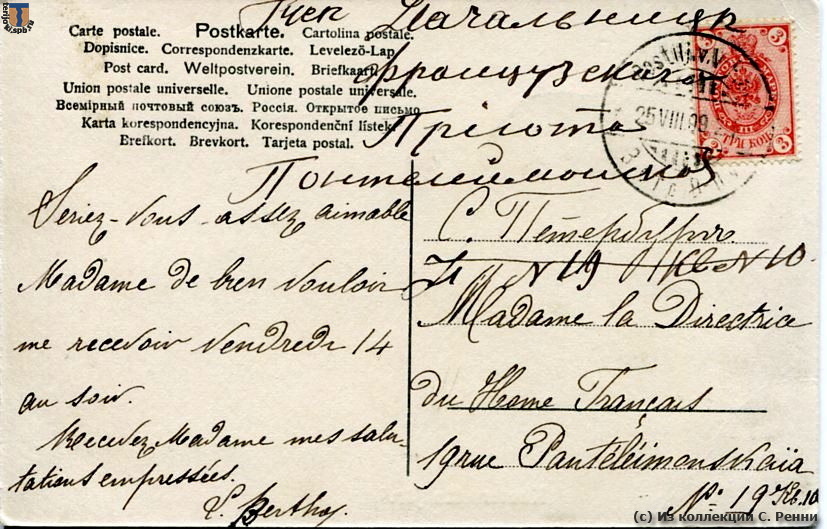 Гжен Начальницѣ
Carte postale. Postkarte. Cartolina postale.
Dopisnice. Correspondenzkarte. Levelező-Lap.
Post card. Weltpostverein. Briefkaart.
Union postale universelle. Unione postale universale.
Всемірный почтовый союзъ. Россія. Открытое письмо
Karta korespondencyjna. Korespondenční lístek.
Brefkort. Brevkort. Tarjeta postal.
Французскаго
Пріюта
Пантелеймонская
С. Петербургъ.
N 19 Кв N 10.
Seriez-vous assez aimable
Madame de bien vouloir
me recevoir vendredi 14
au soir.
Recevez Madame mes salu-
tations empressées.
Berthoz
Madame la Directrice
du Home Français
19 rue Pantéleimonskaïa
No 19 Кв. 10
3 3
ТРИ КОП.
25 VIII 99
(c) Из коллекции С. Ренни